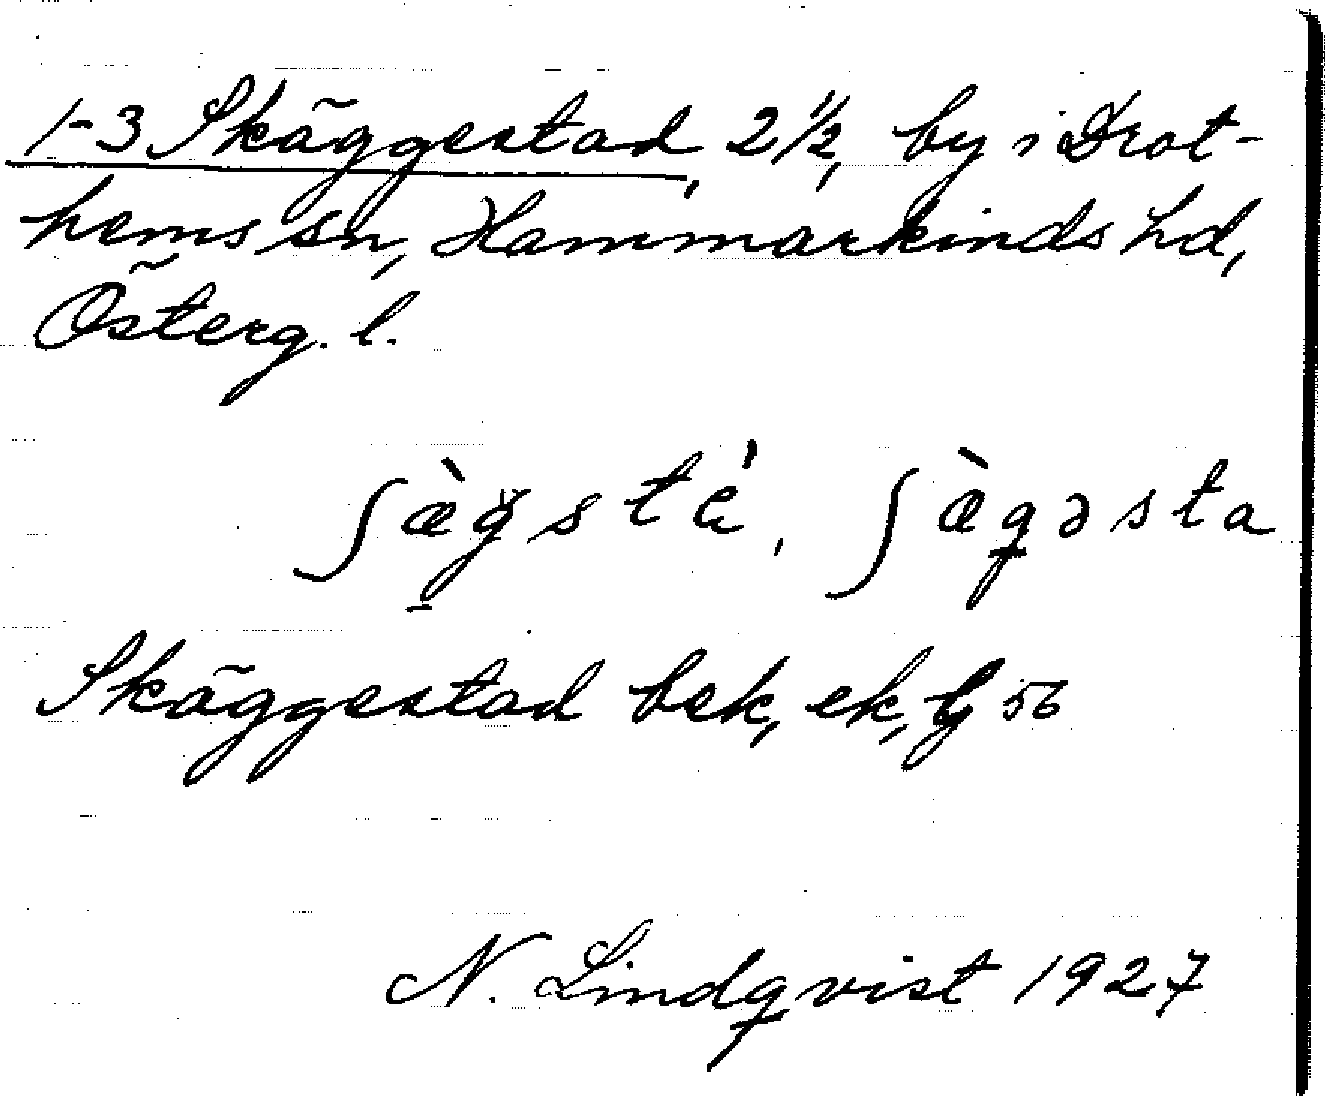 1-3 Skäggestad, 2 1/2, by i Drot-
hems sn, Hammarkinds hd,
Österg. l.
Skäggestad bek, ek,
N. Lindqvist 1927